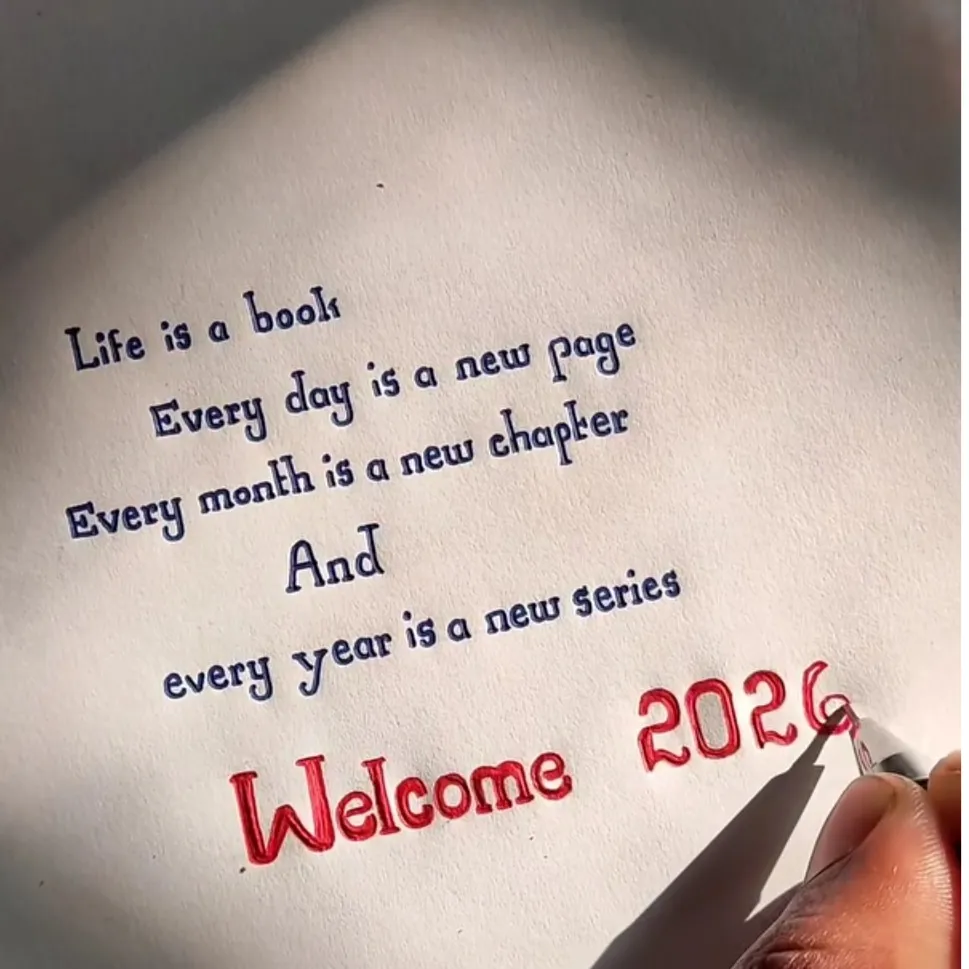 Life is a book
Every day is a new page
Every month is a new chapter
And
every year is a new series
Welcome 2026